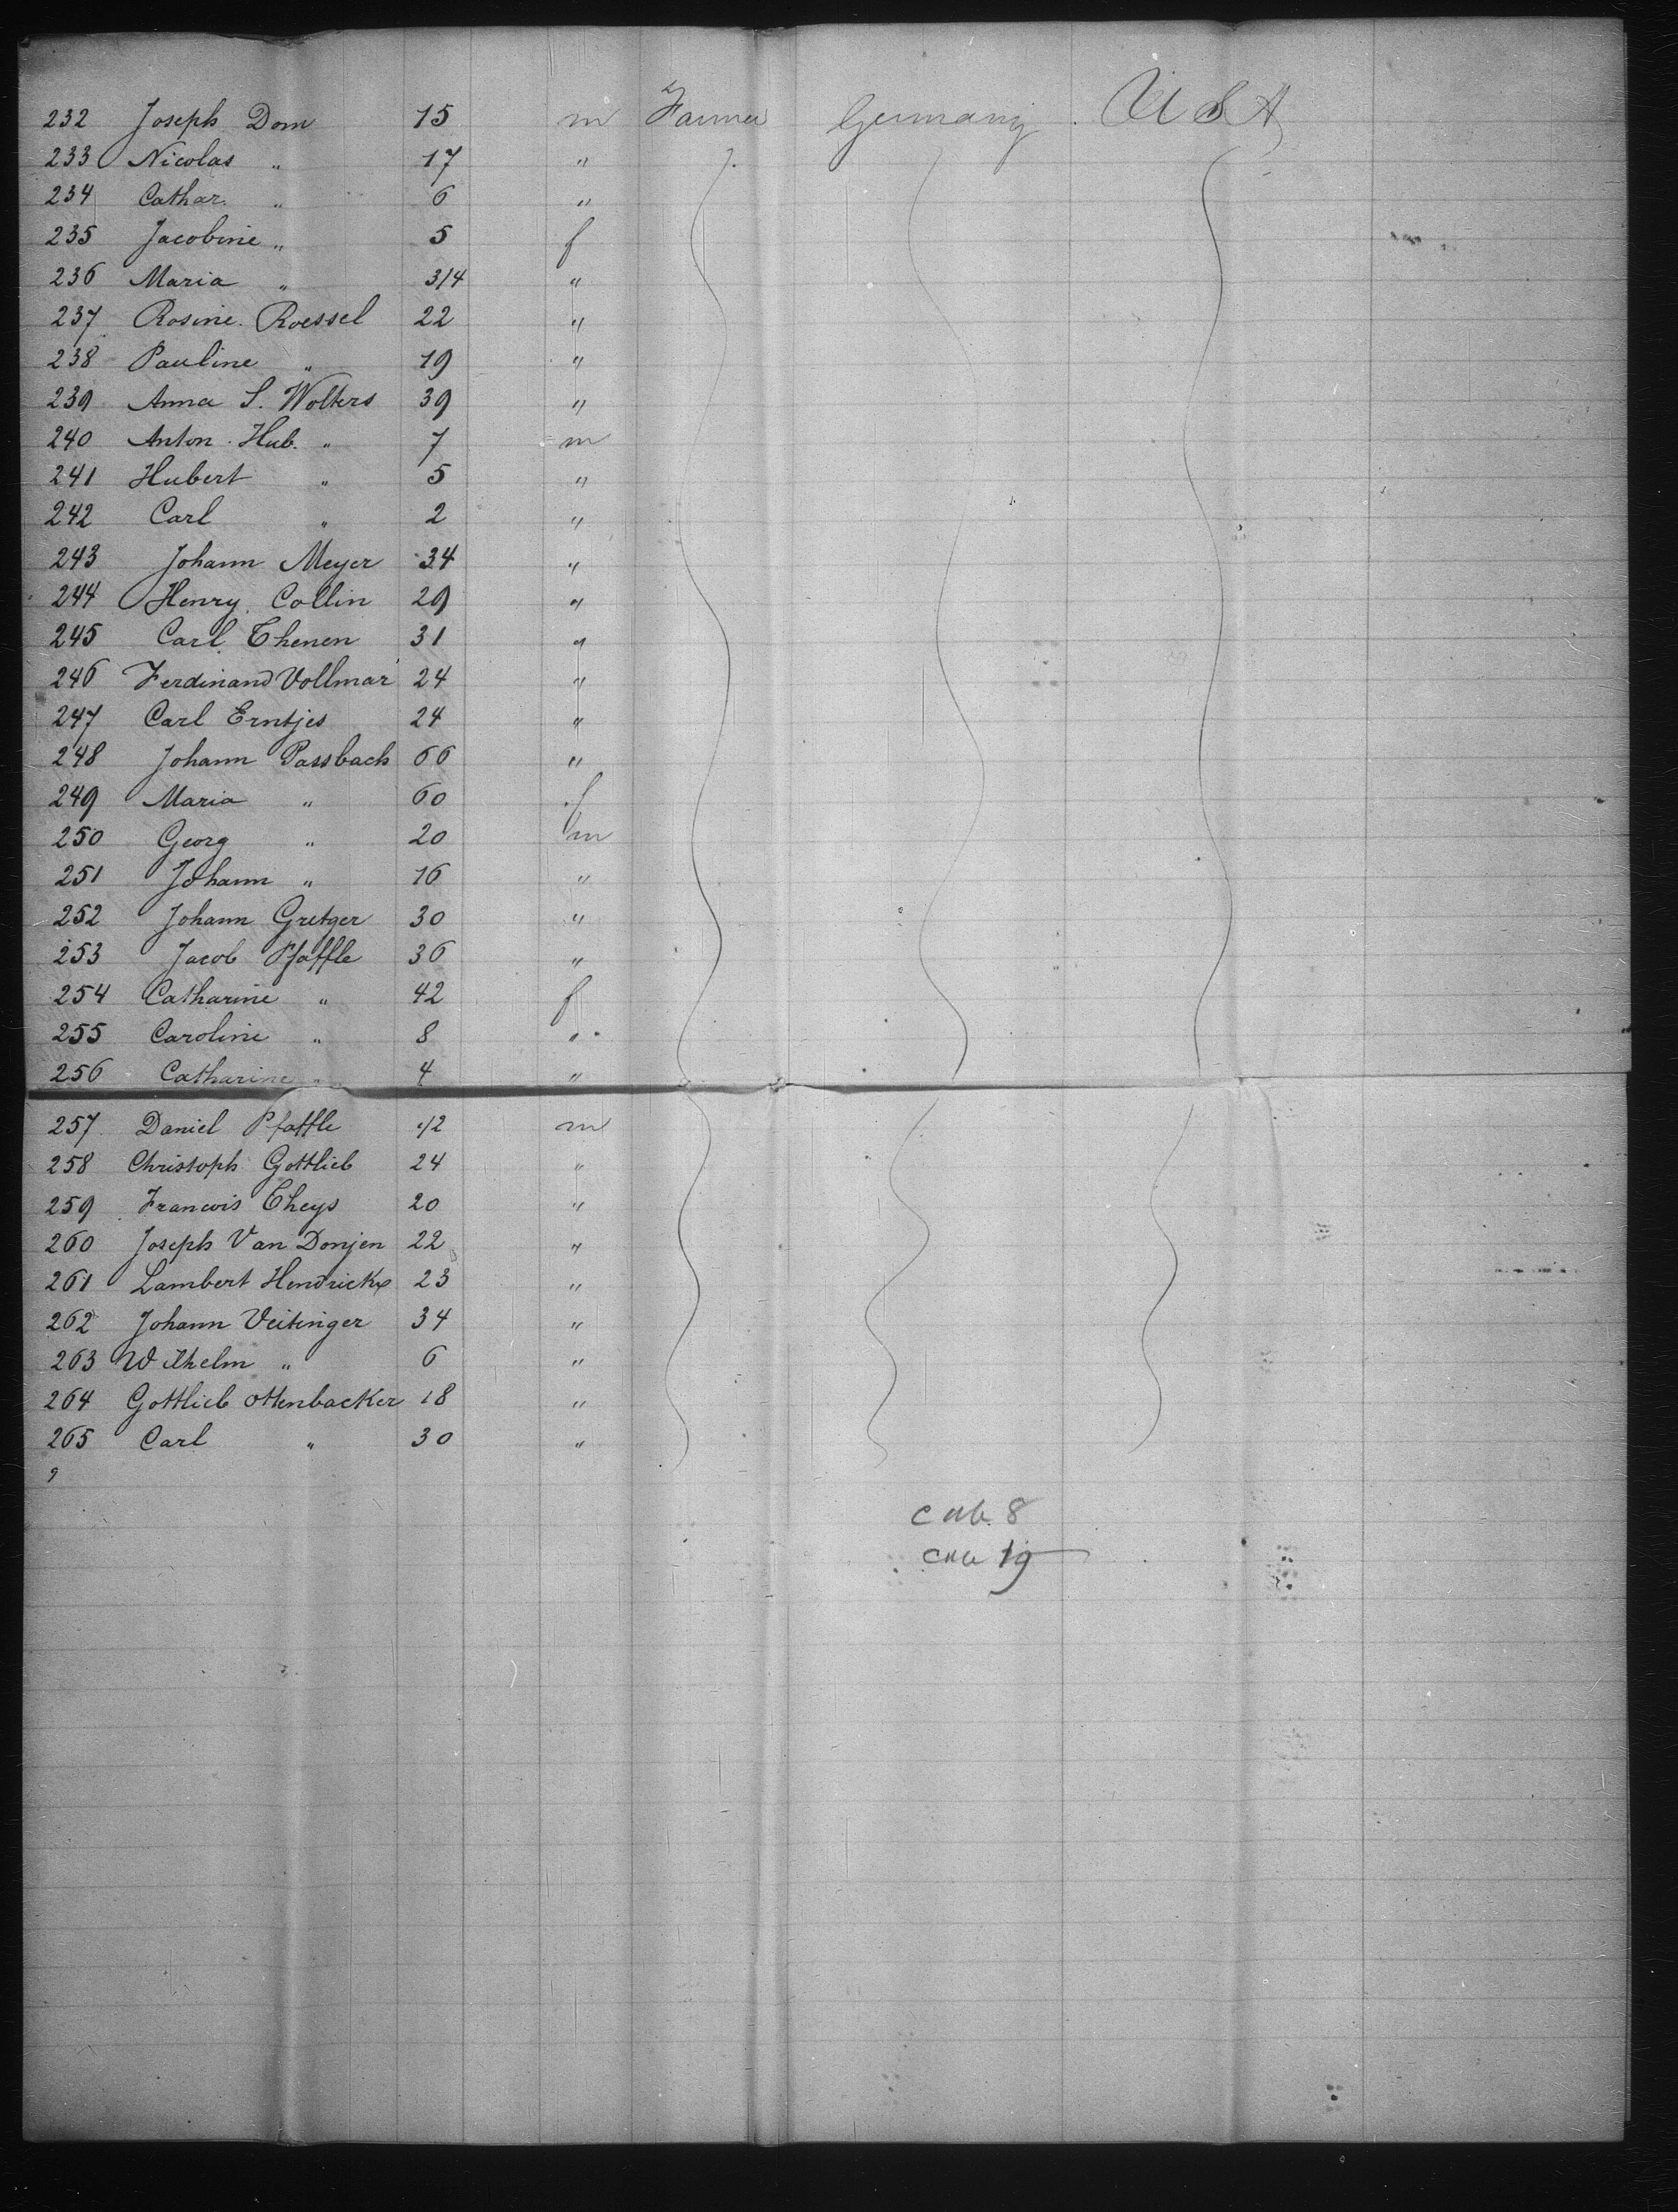 232 Joseph Dom 15 m Farmer Germany USA
233 Nicolas " 17 "
234 Cathar. " 6 "
235 Jacobine " 5 f
236 Maria " 3/4 "
237 Rosine Roessel 22 "
238 Pauline " 19 "
239 Anna S. Wolters 39 "
240 Anton Hub. " 7 m
241 Hubert " 5 "
242 Carl " 2 "
243 Johann Meyer 34 "
244 Henry Collin 29 "
245 Carl Thenen 31 "
246 Ferdinand Vollmar 24 "
247 Carl Erntjes 24 "
248 Johann Passbach 66 "
249 Maria " 60 f
250 Georg " 20 m
251 Johann " 16 "
252 Johann Gretzer 30 "
253 Jacob Pfaffle 36 "
254 Catharine " 42 f
255 Caroline " 8 "
256 Catharine " 4 "
257 Daniel Pfaffle 1/2 m
258 Christoph Gottlieb 24 "
259 Francois Theys 20 "
260 Joseph Van Donjen 22 "
261 Lambert Hendrickx 23 "
262 Johann Veitinger 34 "
263 Wilhelm " 6 "
264 Gottlieb Ottenbacker 18 "
265 Carl " 30 "
8
19